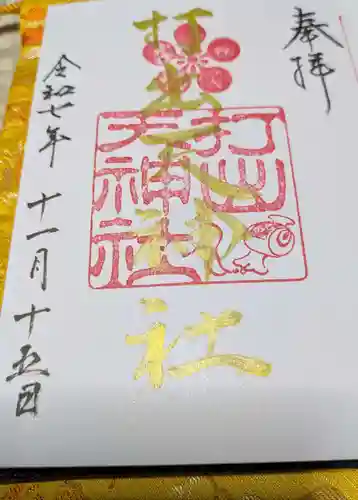 奉拝
打出天神社
打出
天神社
令和七年 十一月 十五日